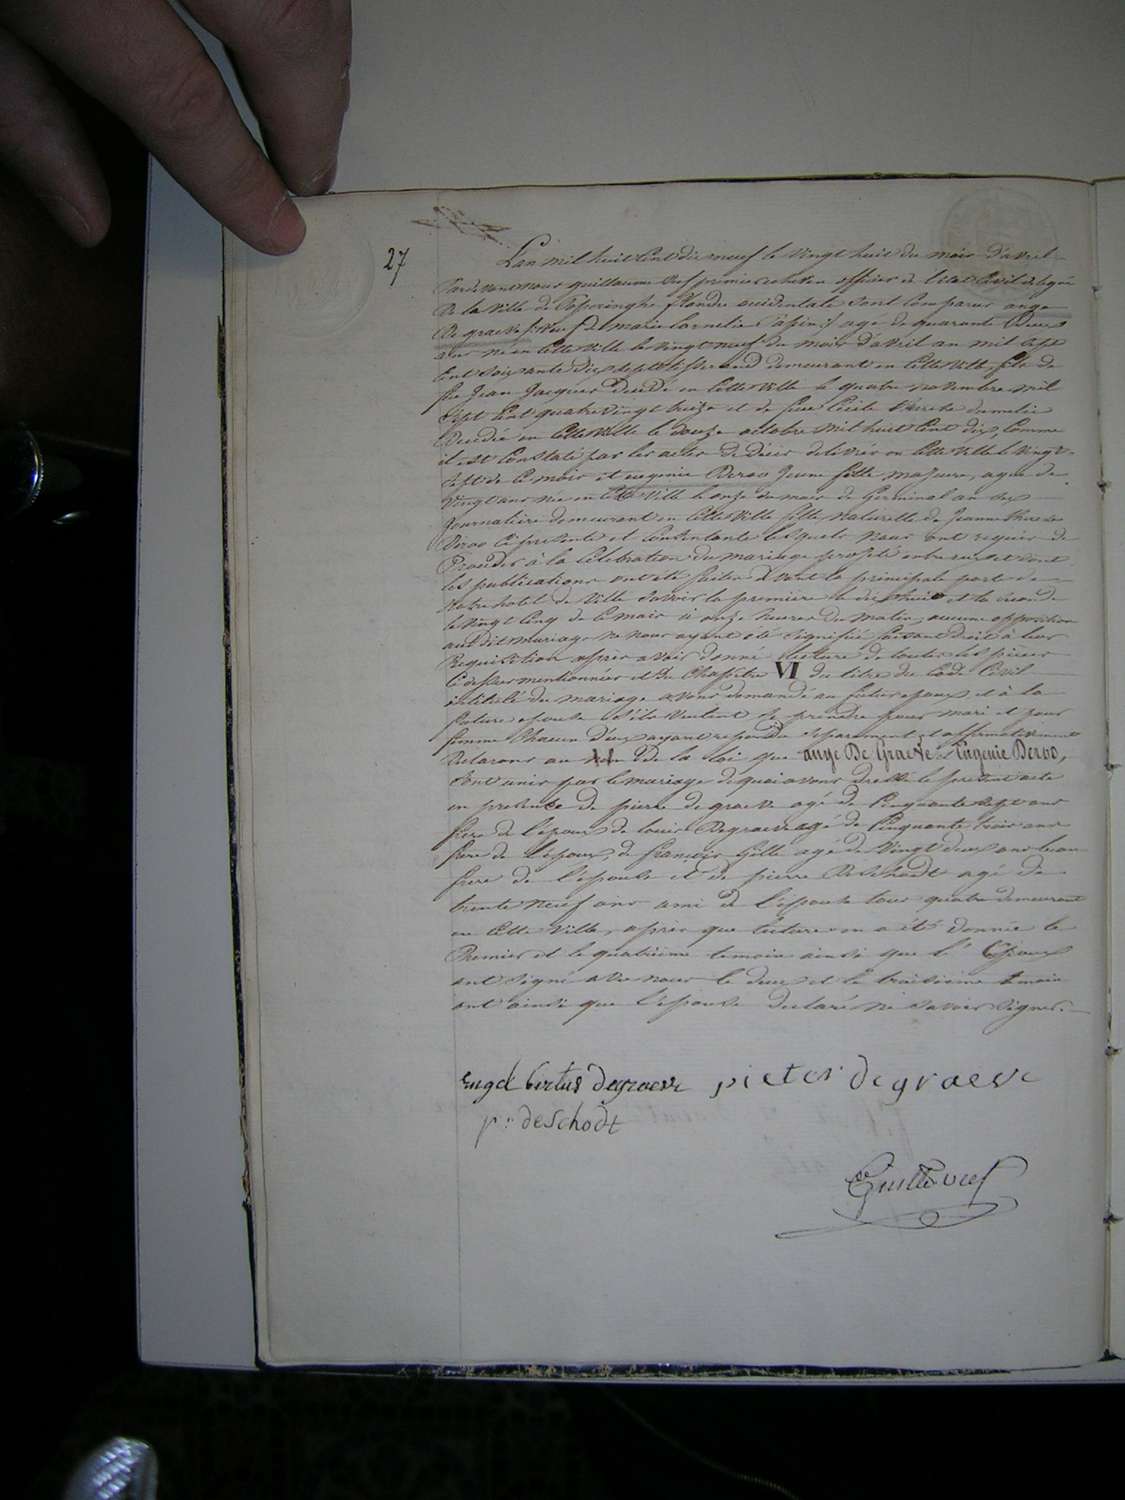 27
L'an mil huit Cent dix neuf le vingt huit du mois d'avril
Pardevant nous guillaume officier de l'etat Civil delegué
De la Ville de Poperinghe flandre occidentale Sont Comparus ange
De graeve veuf de marie Cornelie agé de quarante Deux
ans né en Cette Ville le vingt neuf du mois d'avril an mil sept
Cent Soixante dix sept tisserand demeurant en Cette Ville, fils de
feu Jean Jacques Decedé en Cette Ville le quatre novembre mil
Sept Cent quatre vingt treize et de feue Cecile
Decedée en Cette Ville le douze octobre mil huit Cent dix, Comme
il est Constaté par les actes de Décès delivrés en Cette Ville le Vingt
Sept de Ce mois et eugenie Deroo Jeune fille majeure, agée de
Vingt ans née en Cette Ville le onze du mois de Germinal an
Journaliere demeurant en Cette Ville fille naturelle de Jeanne therese
Deroo Ci presente et Consentante lesquels nous ont requis de
Proceder à la Célébration du mariage projeté entre eux et dont
les publications ont été faites devant la principale porte de
Notre hotel de Ville Savoir la premiere le dix huit et la seconde
le Vingt Cinq de Ce mois à onze heures du matin, aucune opposition
au dit mariage ne nous ayant été Signifiée faisant droit à leur
Requisition après avoir donné lecture de toutes les pièces
Ci dessus mentionnées et du Chapitre VI du titre du Code Civil
intitulé du mariage avons demandé au futur epoux et à la
future epouse S'ils veulent se prendre pour mari et pour
femme Chacun d'eux ayant repondu Separement et affirmativement
Déclarons au nom de la loi que ange De Graeve et Eugenie Deroo,
Sont unis par le mariage de quoi avons dressé le present acte
en presence de pierre de graeve agé de Cinquante Sept ans
frere de l'epoux de louis Degraeve agé de Cinquante trois ans
frere de l'epoux, de françois Gille agé de Vingt deux ans beau
frere de l'epouse et de pierre De Schodt agé de
trente neuf ans ami de l'epouse tous quatre demeurant
en Cette Ville, après que lecture en a été donnée le
Premier et le quatrième temoin ainsi que l'Epoux
ont Signé avec nous le deux et le troisieme temoin
ont ainsi que l'epouse declaré ne Savoir Signer.
Engel bertus degraeve pieter degraeve
p: deschodt
Guille